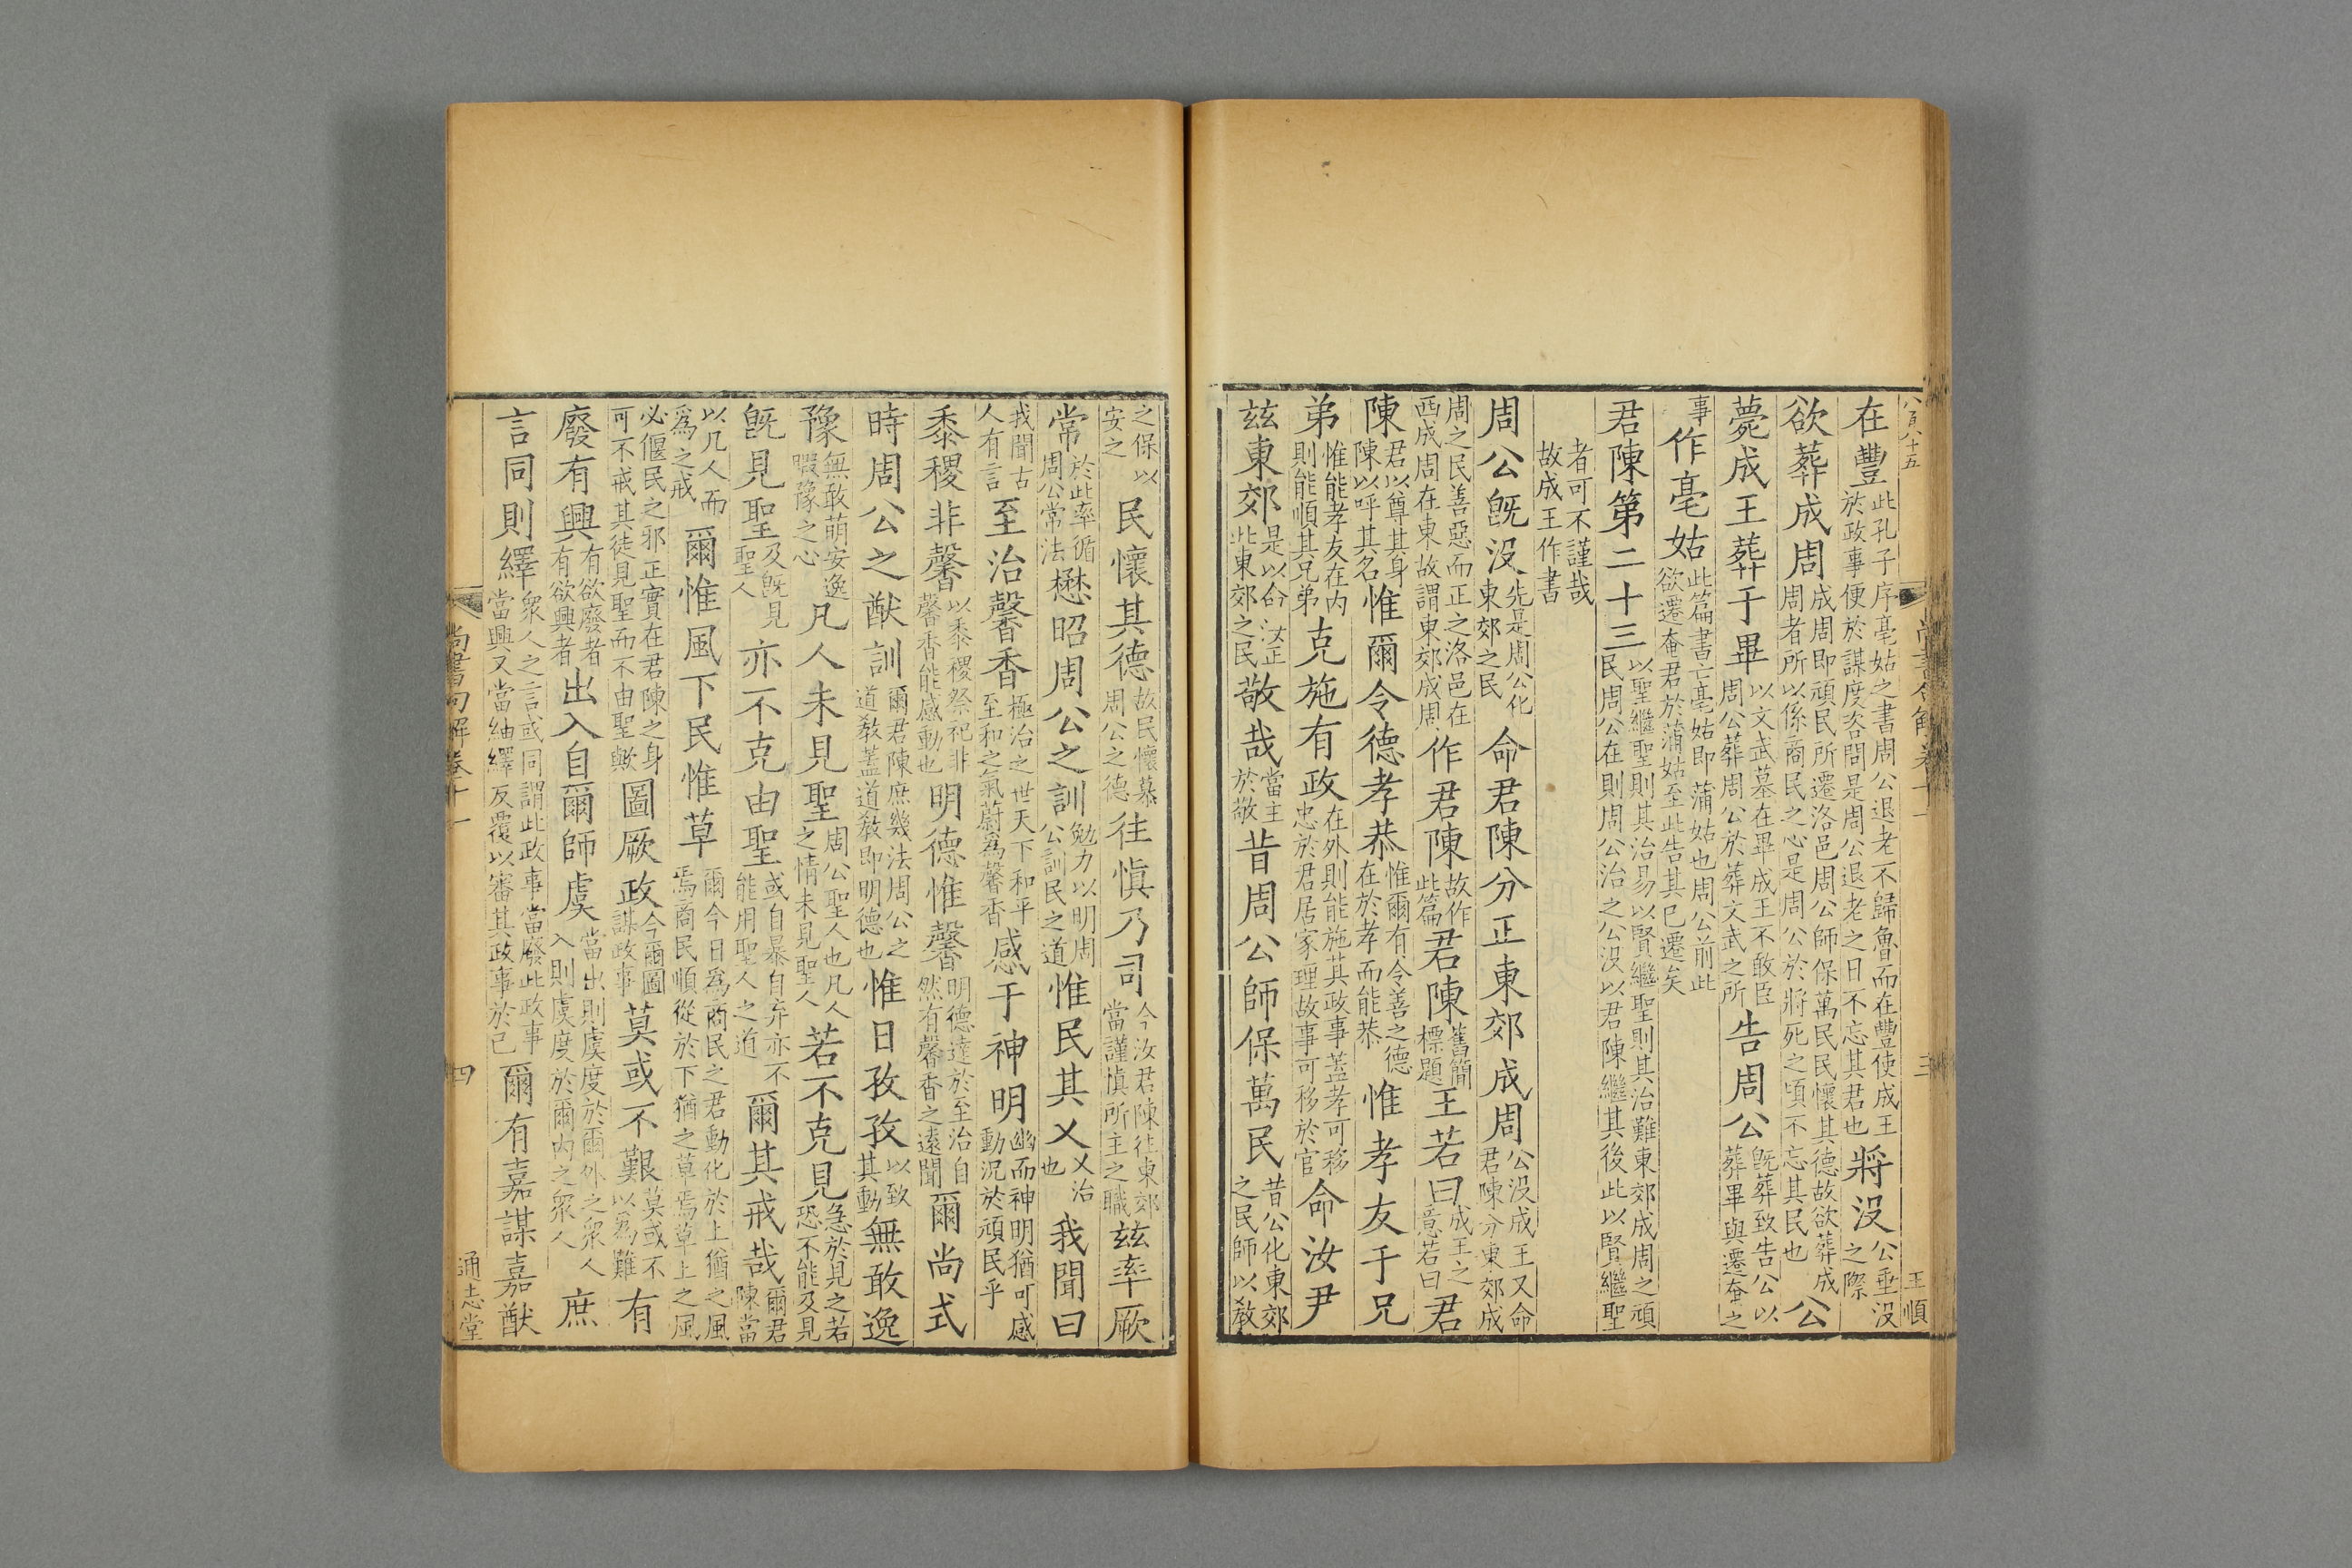 八百八十五
在豐此孔子序亳姑之書周公退老不歸魯而在豐使成王於政事便於謀度咨問是周公退老之日不忘其君也將沒公垂沒之際
欲葬成周成周即頑民所遷洛邑周公師保萬民民懷其德故欲葬成周者所以係商民之心是周公於將死之頃不忘其民也公
薨成王葬于畢以文武墓在畢成王不敢臣周公葬周公於葬文武之所告周公既葬致告公以葬畢與遷奄之
事作亳姑此篇書亡亳姑即蒲姑也周公前此欲遷奄君於蒲姑至此告其已遷矣
君陳第二十三以聖繼聖則其治易以賢繼聖則其治難東郊成周之頑民周公在則周公治之公沒以君陳繼其後此以賢繼聖
者可不謹哉故成王作書
周公旣沒先是周公化東郊之民命君陳分正東郊成周公沒成王又命君陳分東郊成
周之民善惡而正之洛邑在西成周在東故謂東郊成周作君陳故作此篇君陳舊簡標題王若曰成王之意若曰君
陳君以尊其身陳以呼其名惟爾令德孝恭惟爾有令善之德在於孝而能恭惟孝友于兄
弟惟能孝友在内則能順其兄弟克施有政在外則能施其政事蓋孝可移忠於君居家理故事可移於官命汝尹
兹東郊是以命汝正此東郊之民敬哉當主於敬昔周公師保萬民昔公化東郊之民師以敎
尚書句解卷十一
三
王順
之保以安之民懷其德故民懷慕周公之德往愼乃司今汝君陳往東郊當謹愼所主之職兹率厥
常於此率循周公常法懋昭周公之訓勉力以明周公訓民之道惟民其乂乂治也我聞曰
我聞古人有言至治馨香極治之世天下和平至和之氣蔚爲馨香感于神明幽而神明猶可感動況於頑民乎
黍稷非馨以黍稷祭祀非馨香能感動也明德惟馨明德達於至治自然有馨香之遠聞爾尚式
時周公之猷訓爾君陳庶幾法周公之道敎蓋道敎即明德也惟日孜孜以致其動無敢逸
豫無敢萌安逸暇豫之心凡人未見聖周公聖人也凡人之情未見聖人若不克見急於見之若恐不能及見
旣見聖及旣見聖人亦不克由聖或自暴自弃亦不能用聖人之道爾其戒哉爾君陳當
以凡人而爲之戒爾惟風下民惟草爾今日爲商民之君動化於上猶之風焉商民順從於下猶之草焉草上之風
必偃民之邪正實在君陳之身可不戒其徒見聖而不由聖歟圖厥政今爾圖謀政事莫或不艱莫或不以爲難有
廢有興有欲廢者有欲興者出入自爾師虞當出則虞度於爾外之衆人入則虞度於爾内之衆人庶
言同則繹衆人之言或同謂此政事當廢此政事當興又當紬繹反覆以審其政事於己爾有嘉謀嘉猷
尚書句解卷十一
四
通志堂